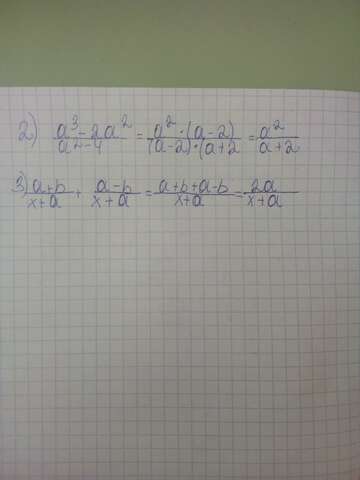 2) (a³-2a²)/(a²-4) = (a²·(a-2))/((a-2)·(a+2) = a²/(a+2)
3) (a+b)/(x+a) + (a-b)/(x+a) = (a+b+a-b)/(x+a) = 2a/(x+a)